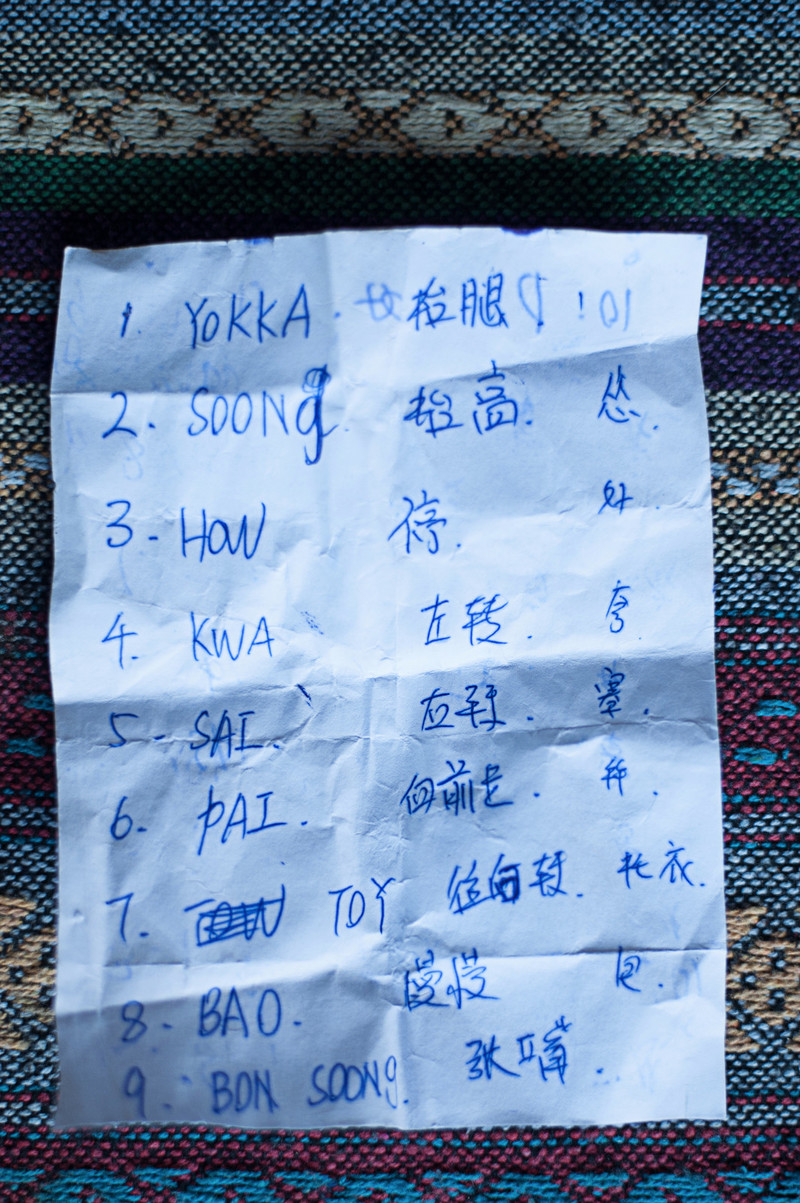 1. YOKKA. 抬腿
2. SOONg. 抬高. 怂.
3 - HOW 停. 好.
4. KWA 左转. 夸.
5 - SAI. 右转.
6. PAI. 向前走.
7. TOY 往后转. 托衣.
8 - BAO. 慢慢 包.
9. BON SOONg. 张口嘴.